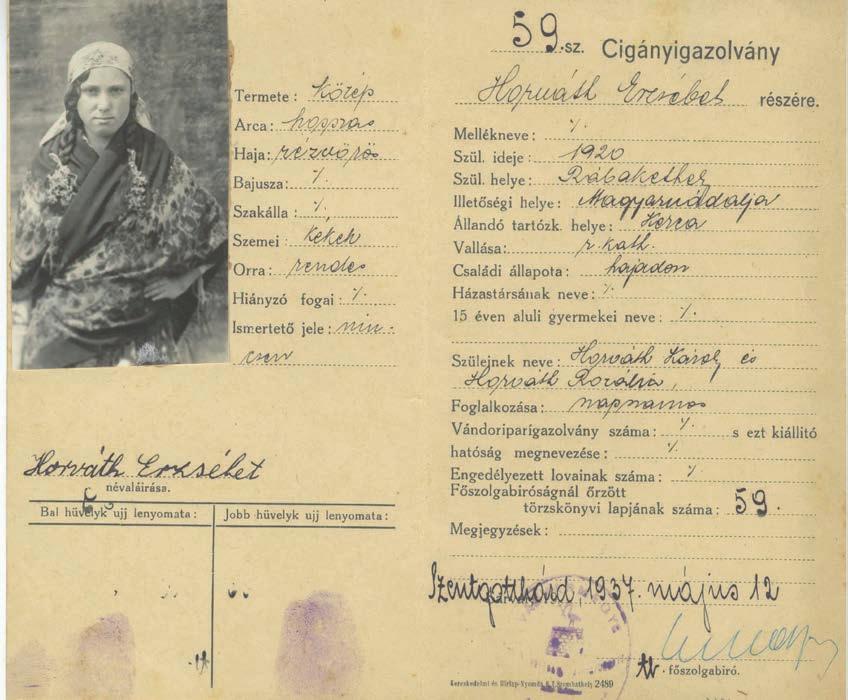 Termete: közép
Arca: hosszas
Haja: rézvörös
Bajusza: ·/.
Szakálla: ·/.
Szemei: kékek
Orra: rendes
Hiányzó fogai: ·/.
Ismertető jele: nin-
csen
Horváth Erzsébet
névaláirása.
Bal hüvelyk ujj lenyomata: Jobb hüvelyk ujj lenyomata:
59.sz. Cigányigazolvány
Horváth Erzsébet részére.
Mellékneve: ·/.
Szül. ideje: 1920
Szül. helye: Rábakethely
Illetőségi helye: Magyarnádalja
Állandó tartózk. helye: Kerca
Vallása: r. kath.
Családi állapota: hajadon
Házastársának neve: ·/.
15 éven aluli gyermekei neve: ·/.
Szülejnek neve: Horváth Károly és
Horváth Rozália,
Foglalkozása: napszamos
Vándoriparigazolvány száma: ·/. s ezt kiállitó
hatóság megnevezése: ·/.
Engedélyezett lovainak száma: ·/.
Főszolgabiróságnál őrzött
törzskönyvi lapjának száma: 59.
Megjegyzések:
Szentgotthárd, 1937. május 12
főszolgabiró.
Kereskedelmi és Hirlap-Nyomda R.T. Szombathely 2489